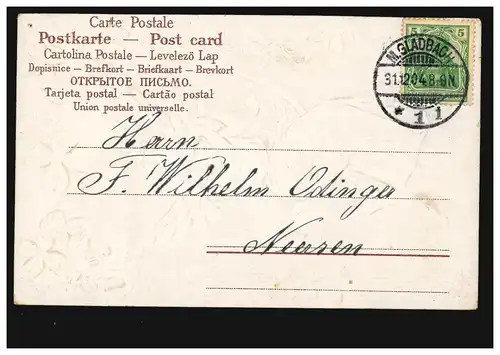 Carte Postale
Postkarte — Post card
Cartolina Postale — Levelező Lap
Dopisnice — Brefkort — Briefkaart — Brevkort
ОТКРЫТОЕ ПИСЬМО.
Tarjeta postal — Cartão postal
Union postale universelle.
5 5
M.GLADBACH
31.12.04.8-9N
* 1 1
Herrn
F. Wilhelm Odinger
Neersen